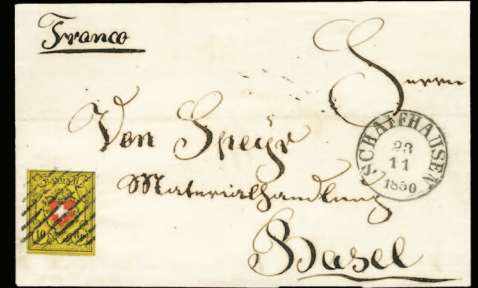 Franco
Herrn
Von Speyr
Materialhandlung
Basel
SCHAFFHAUSEN
23
11
1850
RAYON II
10 Rp.